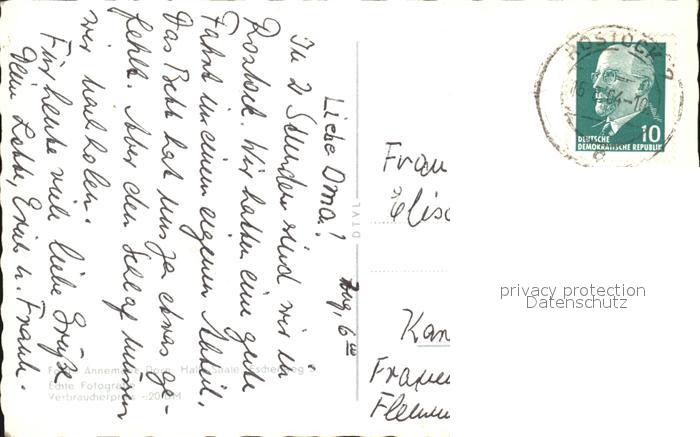 Liebe Oma! Zug, 6 00
In 2 Stunden sind wir in
Rostock. Wir hatten eine gute
Fahrt in einem eigenen Abteil.
Das Bett hat uns ja etwas ge-
fehlt. Aber den Schlaf müssen
wir nachholen.
Für heute viele liebe Grüße
Dein Lotte, Erich u. Frank.
ROSTOCK
16 64-10
10
DEUTSCHE
DEMOKRATISCHE REPUBLIK
Frau
Elise
privacy protection
Datenschutz
Kar
Frauen
Annemarie Dorn, Halle Saale, Eschenweg
Echte Fotografie
Verbraucherpreis -,20 DM